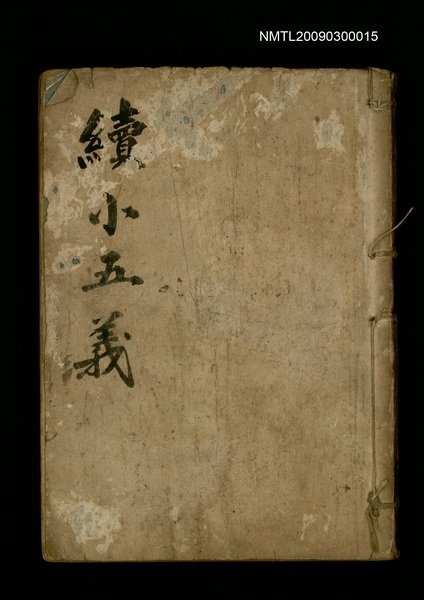 NMTL20090300015
續小五義